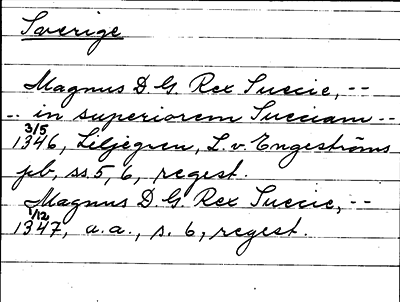 Sverige
Magnus D. G. Rex Suecie, --
-- in superiorem Sueciam --
3/5
1346, Liljegren, L. v. Engeströms
pb, ss. 5, 6, regest.
Magnus D. G. Rex Suecie, --
1/12
1347, a.a., s. 6, regest.